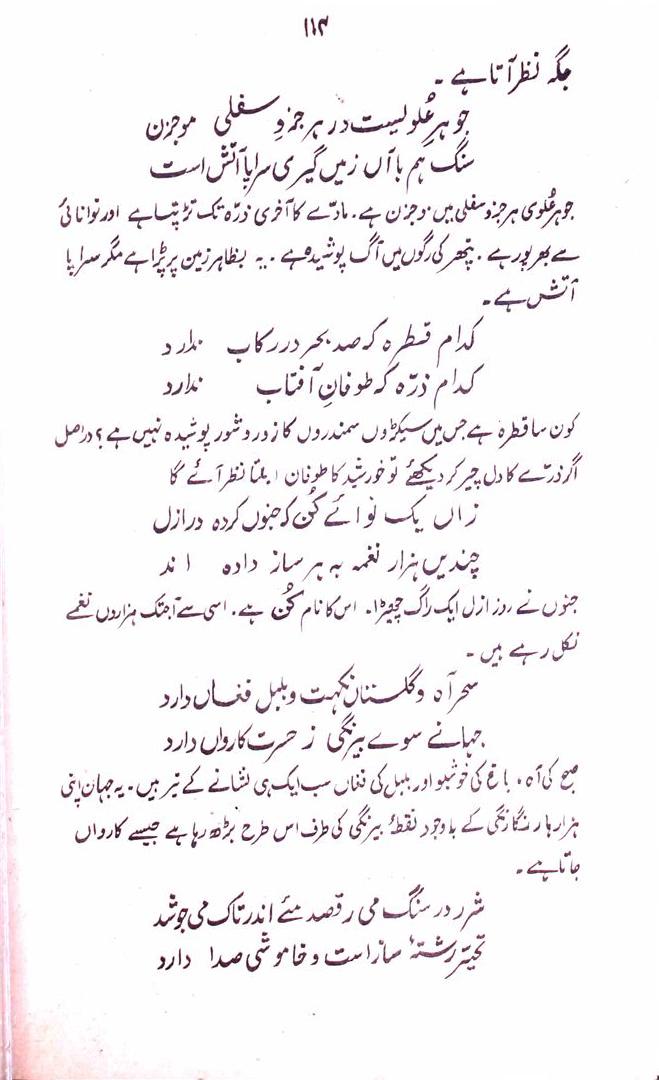 ۱۱۴
جگہ نظر آتا ہے ۔
جوہرِ عُلویست در ہر جزوِ سفلی موجزن
سنگ ہم باآں زمیں گیری سراپا آتش است
جوہر عُلوی ہر جزو سفلی میں موجزن ہے. مادے کا آخری ذرّہ تک تڑپتا ہے اور توانائی
سے بھرپور ہے . پتھر کی رگوں میں آگ پوشیدہ ہے . یہ بظاہر زمین پر پڑا ہے مگر سراپا
آتش ہے ۔
کدام قطرہ کہ صد بحر در رکاب ندارد
کدام ذرّہ کہ طوفانِ آفتاب ندارد
کون سا قطرہ ہے جس میں سیکڑوں سمندروں کا زور و شور پوشیدہ نہیں ہے ؟ دراصل
اگر ذرے کا دل چیر کر دیکھئے تو خورشید کا طوفان ابلتا نظر آئے گا
زاں یک نوائے کُن کہ جنوں کردہ در ازل
چندیں ہزار نغمہ بہ ہر ساز دادہ اند
جنوں نے روز ازل ایک راگ چھیڑا. اس کا نام کُن ہے. اسی سے آجتک ہزاروں نغمے
نکل رہے ہیں ۔
سحر آہ و گلستاں نکہت و بلبل فغاں دارد
جہانے سوے بیرنگی ز حسرت کارواں دارد
صبح کی آہ، باغ کی خوشبو اور بلبل کی فغاں سب ایک ہی نشانے کے تیر ہیں. یہ جہان اپنی
ہزارہا رنگارنگی کے باوجود نقطۂ بیرنگی کی طرف اس طرح بڑھ رہا ہے جیسے کارواں
جاتا ہے ۔
شرر در سنگ می رقصد مئے اندر تاک می جوشد
تحیّر رشتۂ ساز است و خاموشی صدا دارد